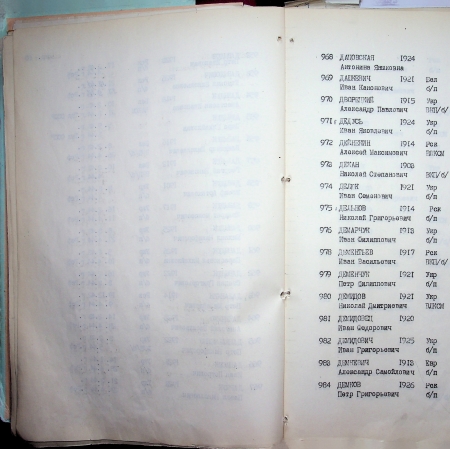 968 ДАШКОВСКАЯ 1924
Антонина Яшковна
969 ДАШКЕВИЧ 1921 Бел
Иван Каионович б/п
970 ДВОРЕЦКИЙ 1915 Укр
Александр Павлович ВКП/б/
971 ДЕДУСЬ 1924 Укр
Иван Яковлевич б/п
972 1914 Рск
Алексей Максимович ВЛКСМ
973 ДЕКАН 1908
Николай Степанович ВКП/б/
974 ДЕЛУК 1921 Укр
Иван Семенович б/п
975 ДЕЛЬНОВ 1914 Рск
Николай Григорьевич б/п
976 ДЕМАРЧУК 1918 Укр
Иван Филиппович б/п
978 ДЕМЕНТЬЕВ 1917 Рск
Иван Васильевич ВКП/б/
979 ДЕМЕНЧУК 1921 Укр
Петр Филиппович б/п
980 ДЕМИДОВ 1921 Укр
Николай Дмитриевич ВЛКСМ
981 ДЕМИДОВЕЦ 1920
Иван Федорович
982 ДЕМИДОВИЧ 1925 Укр
Иван Григорьевич б/п
983 ДЕМЧЕВИЧ 1918 Евр
Александр Самойлович б/п
984 ДЕМКОВ 1926 Рск
Петр Григорьевич б/п